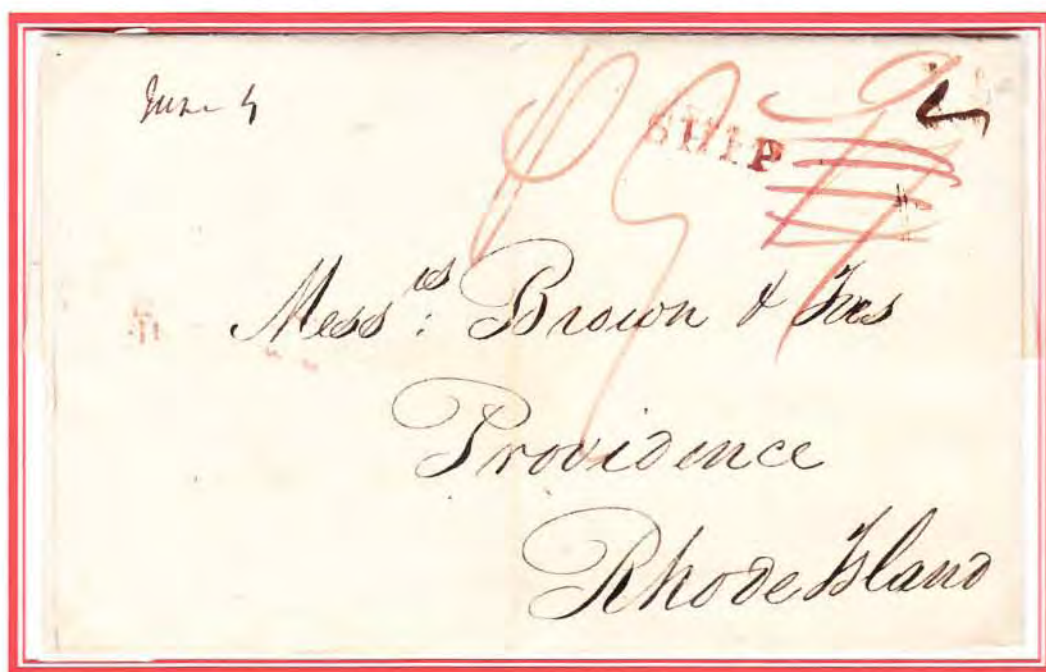 June 4
SHIP
Mess.rs Brown & Ives
Providence
Rhode Island